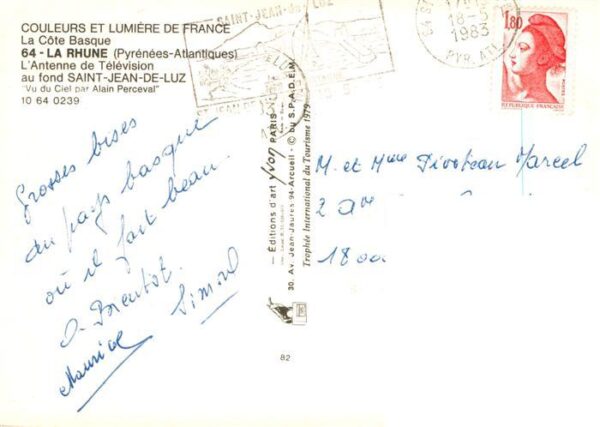 COULEURS ET LUMIÈRE DE FRANCE
La Côte Basque
64 - LA RHUNE (Pyrénées-Atlantiques)
L'Antenne de Télévision
au fond SAINT-JEAN-DE-LUZ
"Vu du Ciel par Alain Perceval"
10 64 0239
Grosses bises
du pays basque
où il fait beau.
A Bientôt.
Maurice Simone
SAINT-JEAN-DE-LUZ
18-5
1983
PYR. ATL.
1,80
REPUBLIQUE FRANCAISE
— Éditions d'art yvon PARIS
30, Av. Jean-Jaurès 94-Arcueil - © by S.P.A.D.E.M.
Trophée International du Tourisme 1979
M. et Mme Pivoteau Marcel
2 ave
18000
82